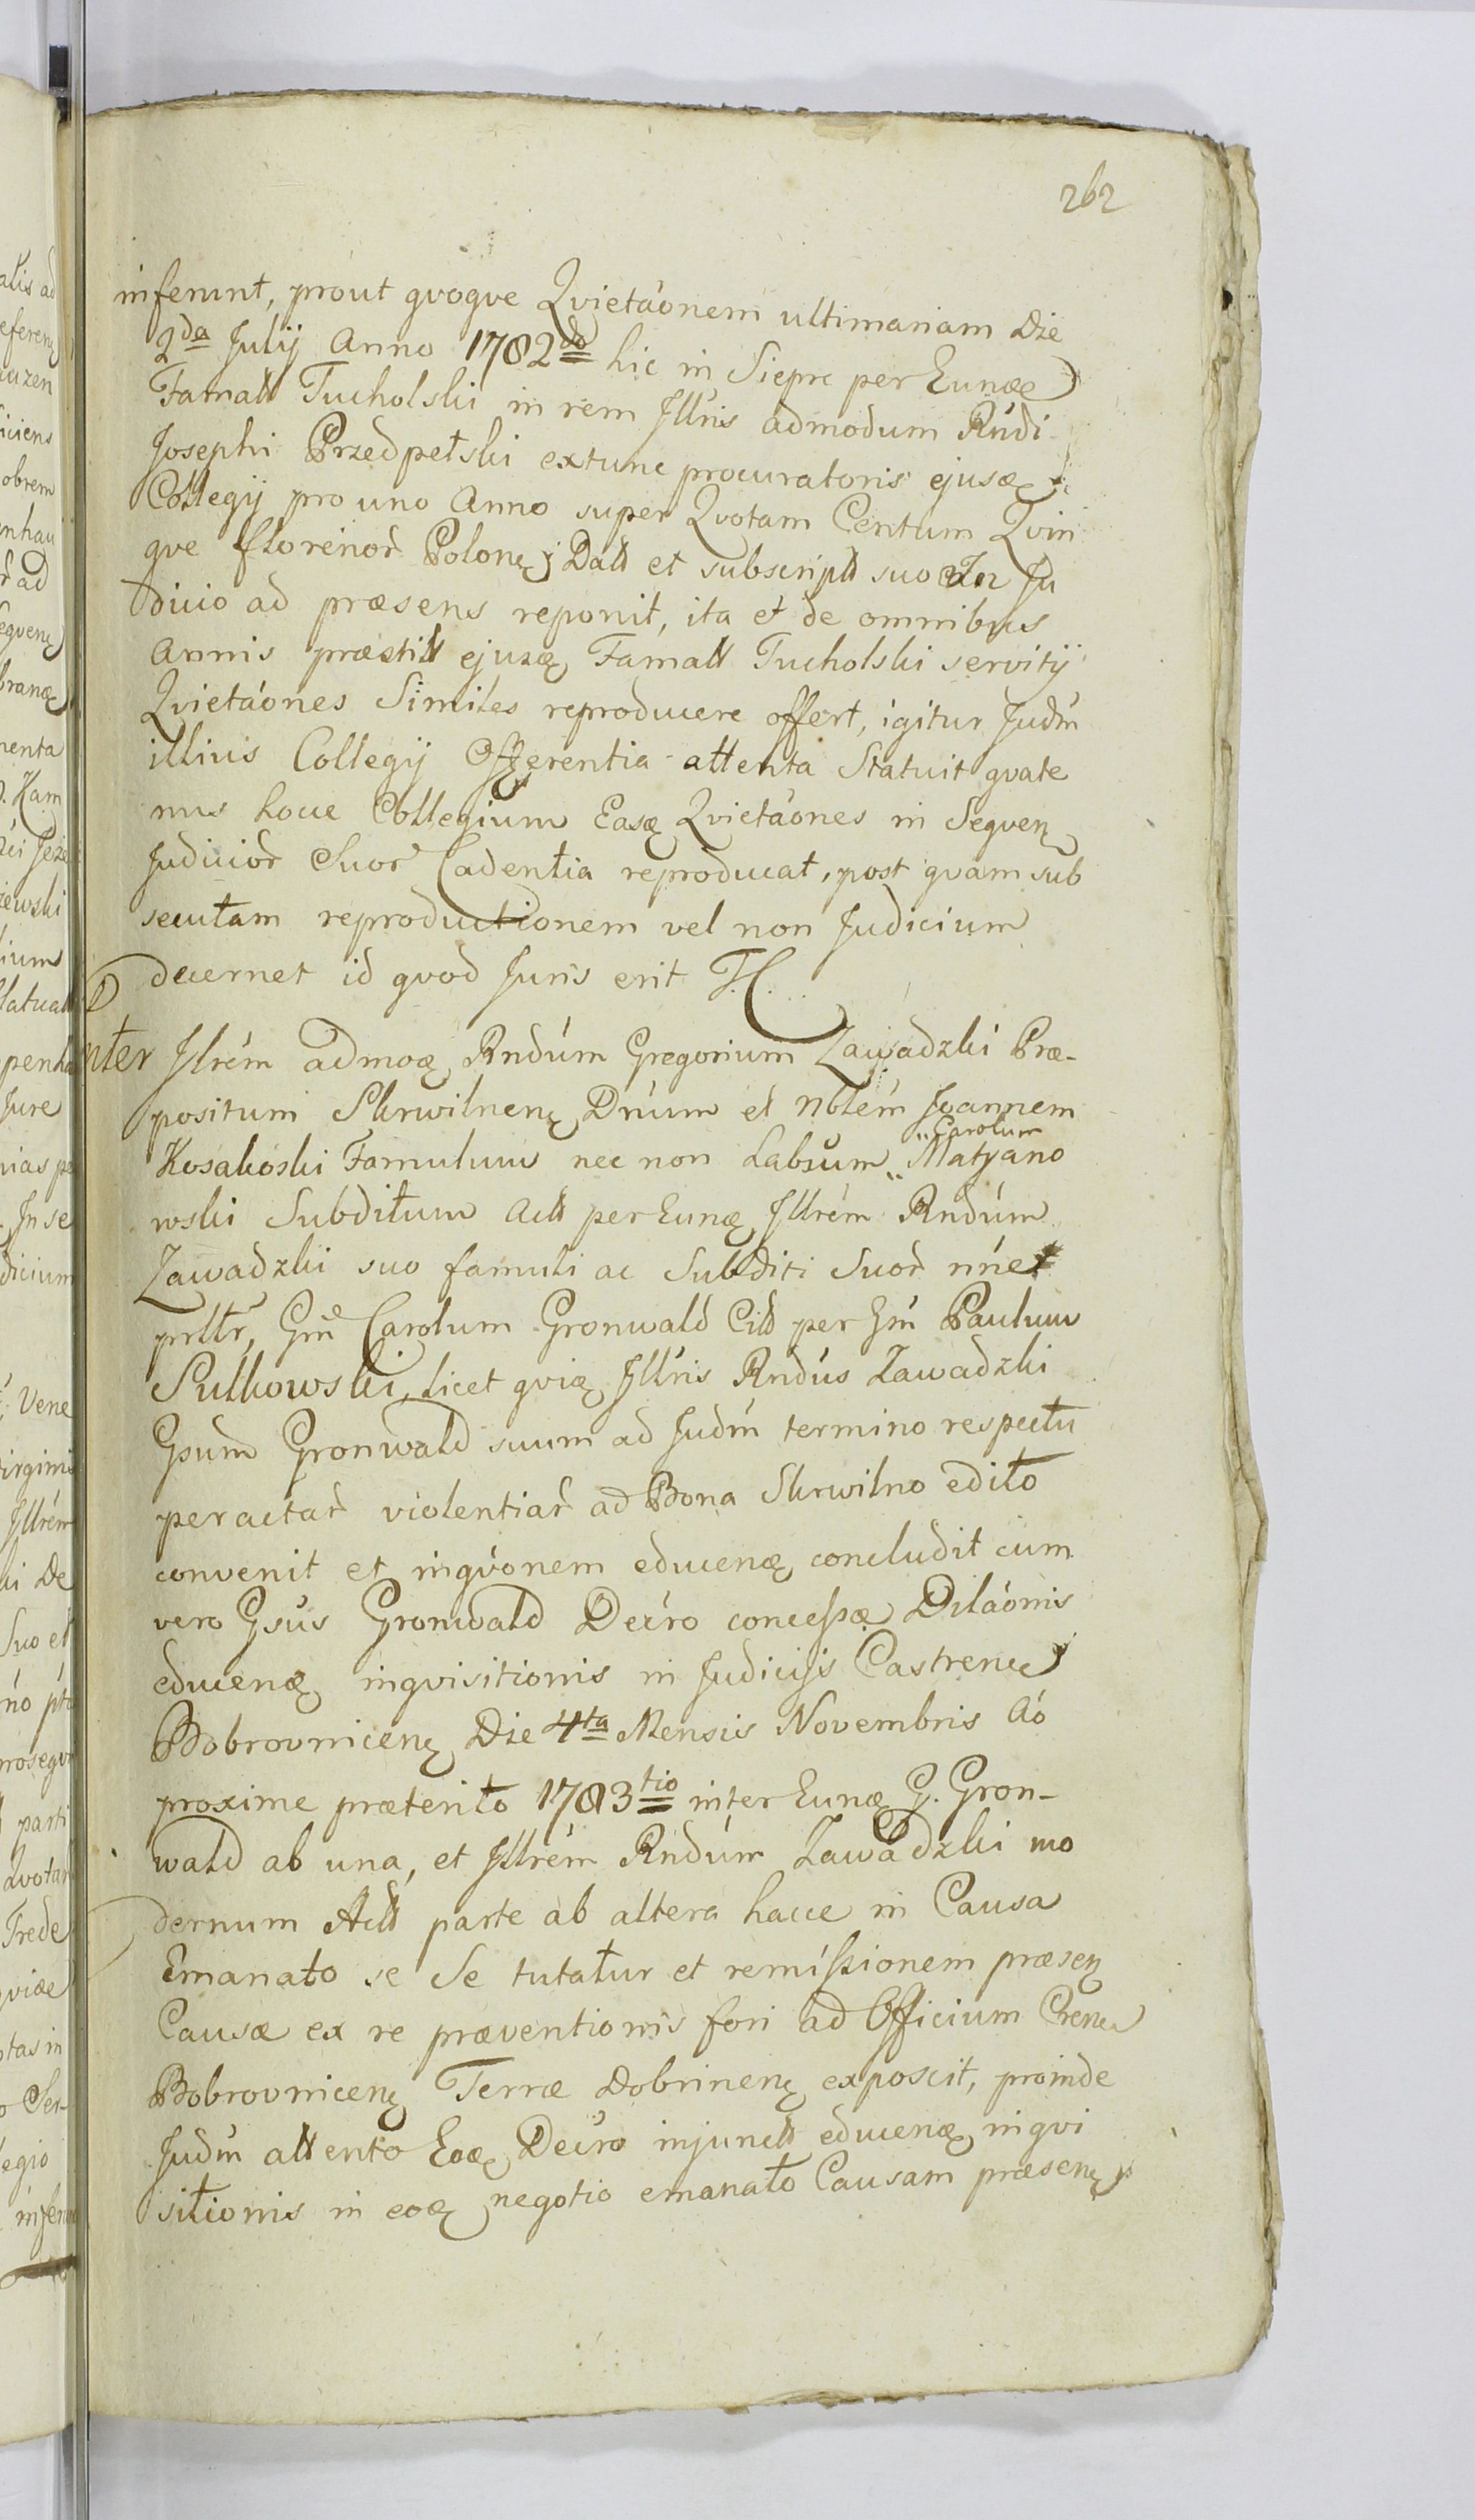 262
inferunt, prout qvoqve Qvietáonem ultimariam Die
2da Julij Anno 1782do hic in Siepre per Eunæ
Famatt Tucholski in rem Jllris admodum Rńdi
Josephi Przedpełski extunc procuratoris ejusæ
Collegij pro uno Anno super Qvotam Centum Qvin
qve florenor Polonę Datt et subscriptt suo In Ju
dicio ad præsens reponit, ita et de omnibus
Annis præstitt ejusæ Famatt Tucholski servitij
Qvietáones Similes reproducere offert, igitur Judm
illius Collegij Offerentia attenta Statuit qvate
nus hocce Collegium Easę Qvietáones in Seqvenę
Judicior Suor Cadentia reproducat, post qvam sub
secutam reproductionem vel non Judicium
decernet id qvod Juris erit
nter Jlrém admoę Rndúm Gregorium Zawadzki Præ-
positum Skrwilnenę Dnum et Nblém Joannem
Carolum
Kosakoski Famulum nec non Labsum Matyano
wski Subditum Actt per Eunę Jllrém Rndúm
Zawadzki suo famuli ac Subditi Suor nńe
prltr, Gm Carolum Gronwald Citt per Gm Paulum
Sulkowski, licet qvię Jllris Rndús Zawadzki
Gsum Gronwald suum ad Judm termino respectu
peractar violentiar ad Bona Skrwilno edito
convenit et inqvónem educenę concludit cum
vero Gsus Gronwald Decro concessæ Diláonis
educenę inqvisitionis in Judicijs Castrene
Bobrovnicenę Die 4ta Mensis Novembris Aó
proxime præterito 1783tio inter Eunę G. Gron-
wald ab una, et Jllrém Rndúm Zawadzki mo
dernum Actt parte ab altera hacce in Causa
Emanato se Se tutatur et remissionem præsenę
Causæ ex re præventionis fori ad Officium Crene
Bobrovnicenę Terræ Dobrinenę exposcit, proinde
Judm attento Eoę Decro injunctt educenę inqvi
sitionis in eoę negotio emanato Causam præsenę